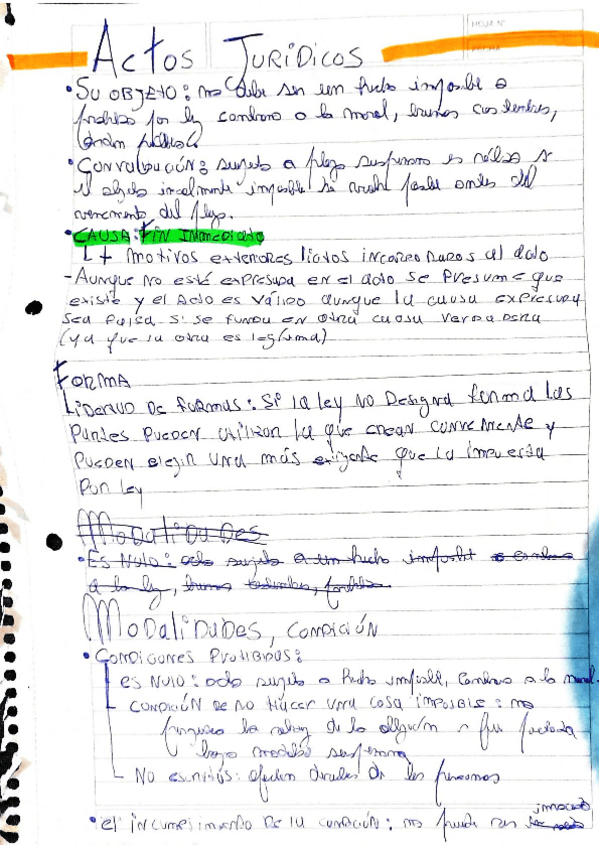 HOJA Nº
FECHA
Actos Jurídicos
• Su OBJETO: no debe ser un hecho imposible o
prohibido por ley contrario a la moral, buenas costumbres,
orden público
• Convalidación: sujeto a plazo suspensivo es válido si
el objeto inicialmente imposible se vuelve posible antes del
vencimiento del plazo.
• CAUSA: FIN INMEDIATO
+ motivos exteriores lícitos incorporados al acto
- Aunque no está expresada en el acto se presume que
existe y el acto es válido aunque la causa expresada
sea falsa si se funda en otra causa verdadera
(ya que la otra es legítima)
FORMA
Libertad de formas: si la ley no designa forma las
partes pueden utilizar la que crean conveniente y
pueden elegir una más exigente que la impuesta
por ley
Modalidades
• Es nulo: acto sujeto a un hecho imposible
a la ley, buenas costumbres,
Modalidades, condición
• Condiciones prohibidas:
es nulo: acto sujeto a hecho imposible, contrario a la moral.
condición de no hacer una cosa imposible: no
perjudica la validez de la obligación si fue pactada
bajo modalidad suspensiva
No escritas: afecten de las personas
inmoral
• el incumplimiento de la condición: no puede ser